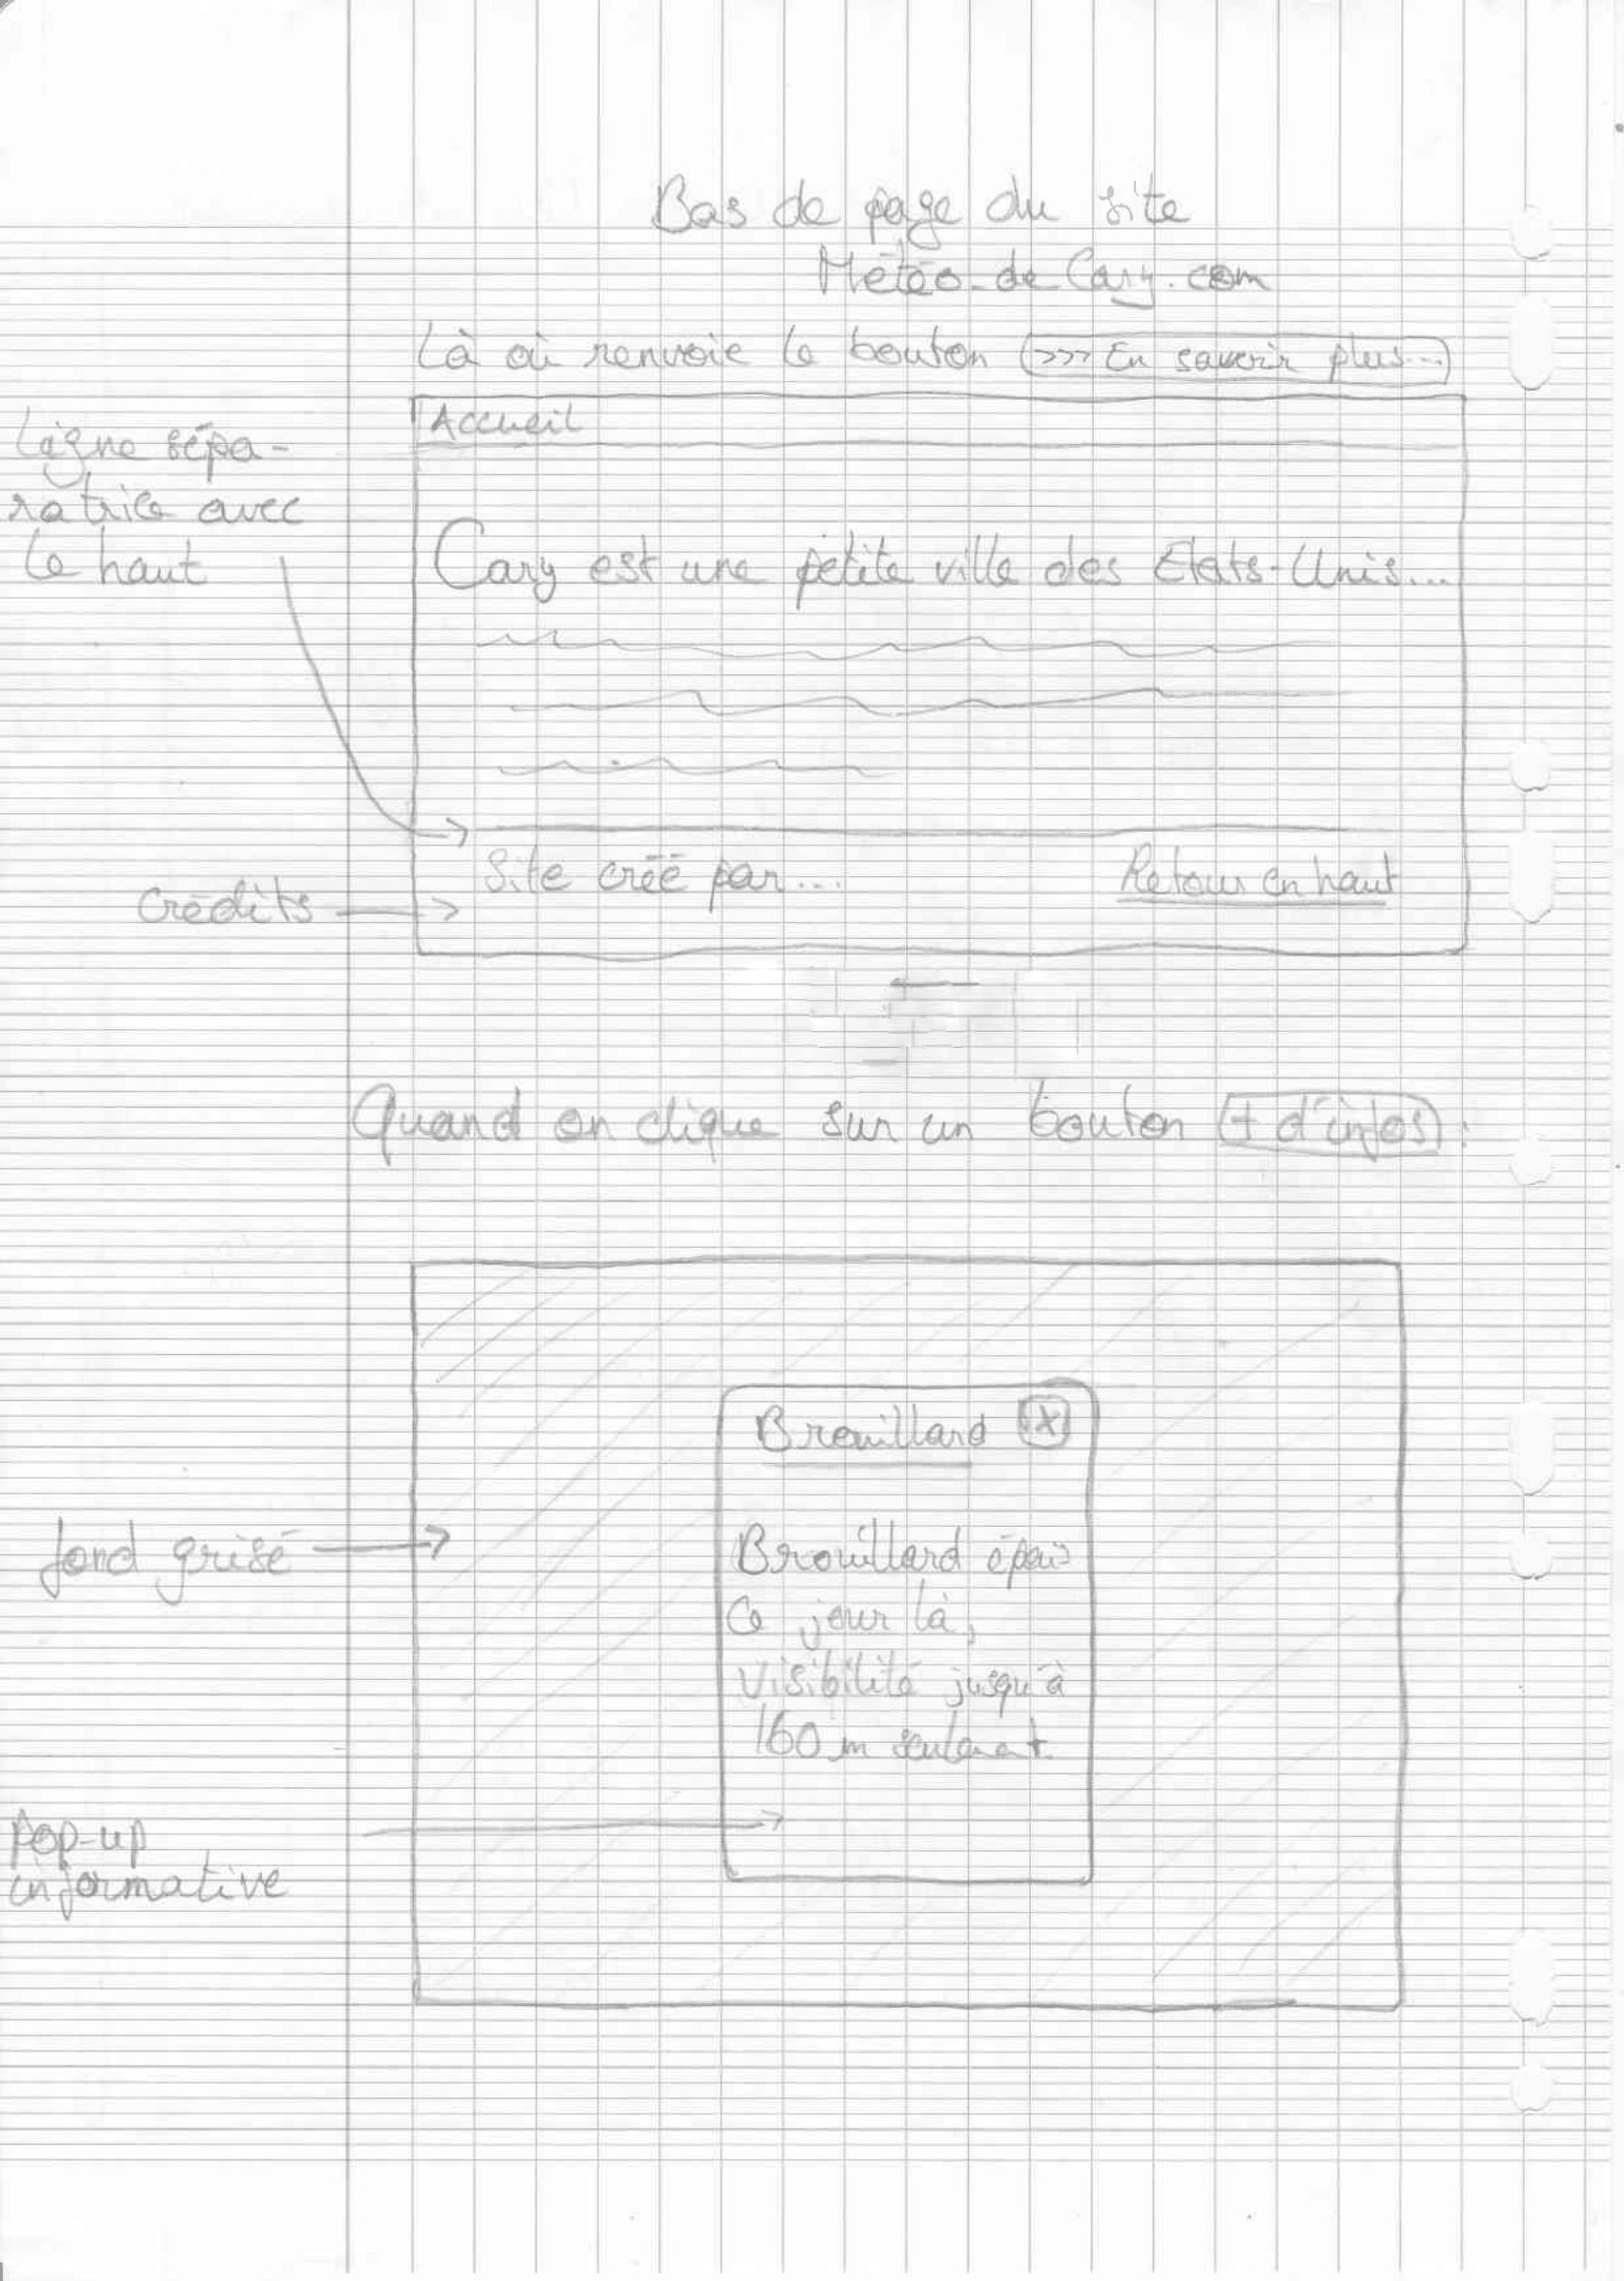 Bas de page du site
Météo-de Cary.com
Là où renvoie le bouton >>> En savoir plus...
Accueil
Ligne sépa-
ratrice avec
le haut
Cary est une petite ville des Etats-Unis...
Site créé par...
Retour en haut
Crédits
Quand on clique sur un bouton + d'infos :
Brouillard X
Brouillard épais
ce jour là,
visibilité jusqu'à
160 m seulement.
fond grisé
Pop-up
informative